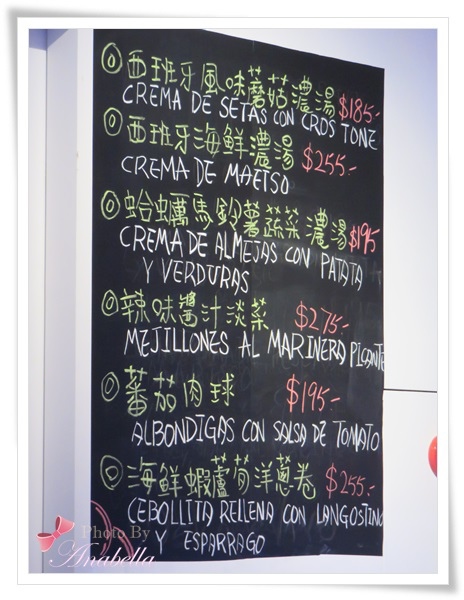 西班牙風味蘑菇濃湯 $185-
CREMA DE SETAS CON CROS TONE
西班牙海鮮濃湯 $255-
CREMA DE MAETSO
蛤蠣馬鈴薯蔬菜濃湯 $195
CREMA DE ALMEJAS CON PATATA
Y VERDURAS
辣味醬汁淡菜 $275-
MEJILLONES AL MARINERA PICANTE
蕃茄肉球 $195-
ALBONDIGAS CON SALSA DE TOMATO
海鮮蝦蘆荀洋蔥卷 $255-
CEBOLLITA RELLENA CON LANGOSTINO
Y ESPARRAGO
Photo By
Anabella